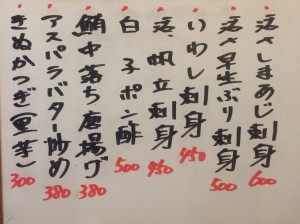 活〆しまあじ刺身 600
活〆早生ぶり刺身 500
いわし刺身 450
活〆帆立刺身 450
白子ポン酢 500
鮪中落ち唐揚げ 380
アスパラバター炒め 380
きぬかつぎ(里芋) 300